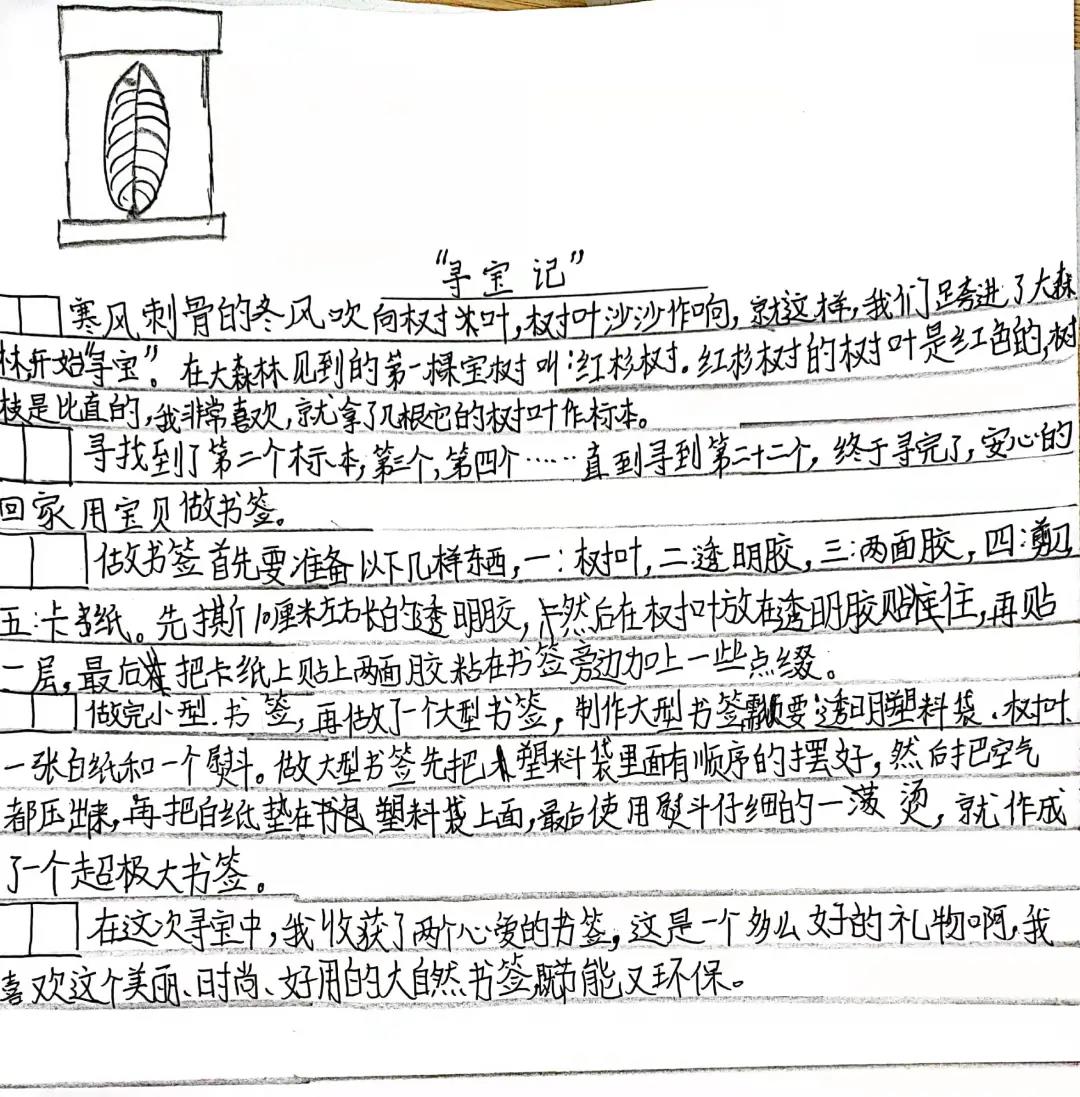 “寻宝记”
寒风刺骨的冬风吹向树木叶,树叶沙沙作响,就这样,我们跨进了大森
林,开始“寻宝”。在大森林见到的第一棵宝树叫:红杉树.红杉树的树叶是红色的,树
枝是比直的,我非常喜欢,就拿了几根它的树叶作标本。
寻找到了第二个标本,第三个,第四个……直到寻到第二十二个,终于寻完了,安心的
回家用宝贝做书签。
做书签首先要准备以下几样东西,一:树叶,二透明胶,三:两面胶,四:剪刀
五:卡纸。先撕10厘米左右长的透明胶,然后在树叶放在透明胶贴住,再贴
一层,最后把卡纸上贴上两面胶粘在书签旁边加上一些点缀。
做完小型书签,再做了一个大型书签,制作大型书签需要透明塑料袋.树叶
一张白纸和一个熨斗。做大型书签先把塑料袋里面有顺序的摆好,然后把空气
都压出来,再把白纸垫在塑料袋上面,最后使用熨斗仔细的一烫,就作成
了一个超极大书签。
在这次寻宝中,我收获了两个心爱的书签,这是一个多么好的礼物啊,我
喜欢这个美丽、时尚、好用的大自然书签既节能又环保。